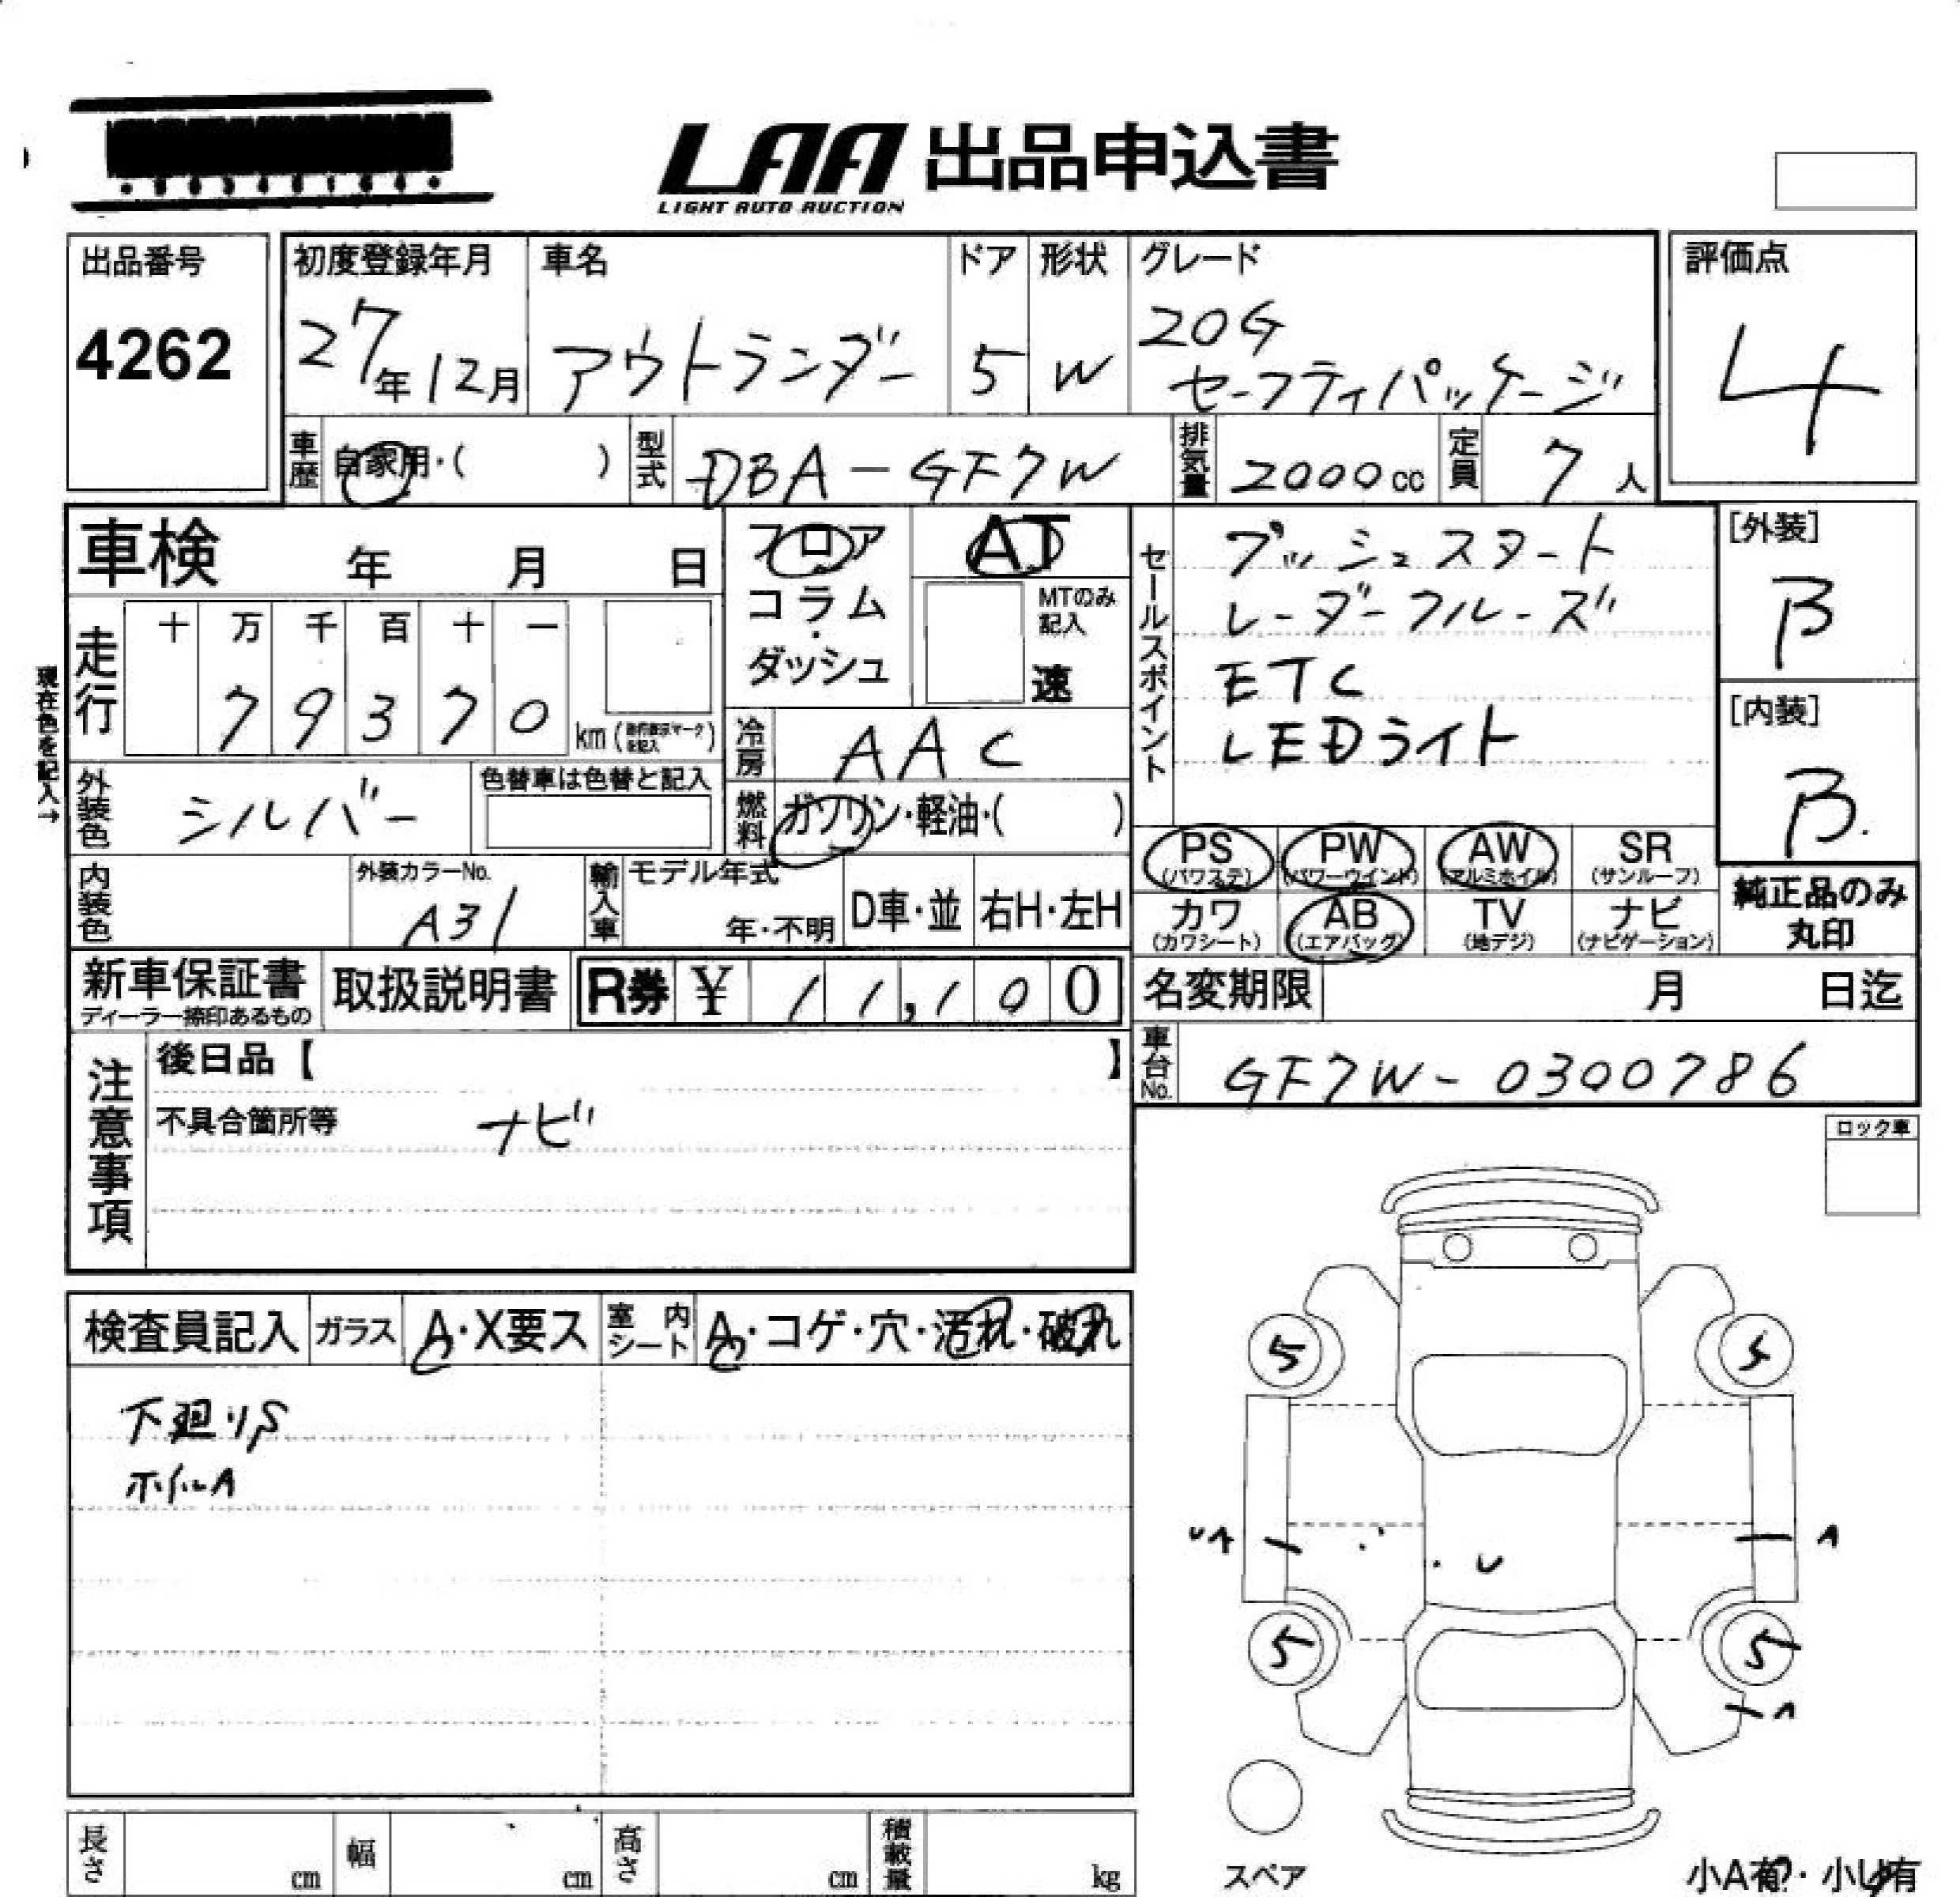 LAA 出品申込書
LIGHT AUTO AUCTION
出品番号
4262
初度登録年月
27年12月
車名
アウトランダー
ドア
5
形状
W
グレード
20G
セーフティパッケージ
評価点
4
車歴
自家用・( )
型式
DBA-GF7W
排気量
2000cc
定員
7人
車検 年 月 日
フロア
コラム
・
ダッシュ
AT
MTのみ
記入
速
セールスポイント
プッシュスタート
レーダークルーズ
ETC
LEDライト
[外装]
B
[内装]
B.
現在色を記入→
走行
十 万 千 百 十 一
7 9 3 7 0 km
冷房
AAC
外装色
シルバー
色替車は色替と記入
燃料
ガソリン・軽油・( )
PS
(パワステ)
PW
(パワーウインド)
AW
(アルミホイル)
SR
(サンルーフ)
カワ
(カワシート)
AB
(エアバッグ)
TV
(地デジ)
ナビ
(ナビゲーション)
純正品のみ
丸印
内装色
外装カラーNo.
A31
輸入車
モデル年式
年・不明
D車・並
右H・左H
新車保証書
ディーラー捺印あるもの
取扱説明書
R券 ¥ 11,100
名変期限 月 日迄
車台No.
GF7W-0300786
注意事項
後日品【 】
不具合箇所等 ナビ
ロック車
検査員記入
ガラス A・X要ス
室内シート A・コゲ・穴・汚れ・破れ
下廻りS
ホイルA
5
5
UA
A
U
5
5
A
スペア
長さ cm
幅 cm
高さ cm
積載量 kg
小A有・小U有